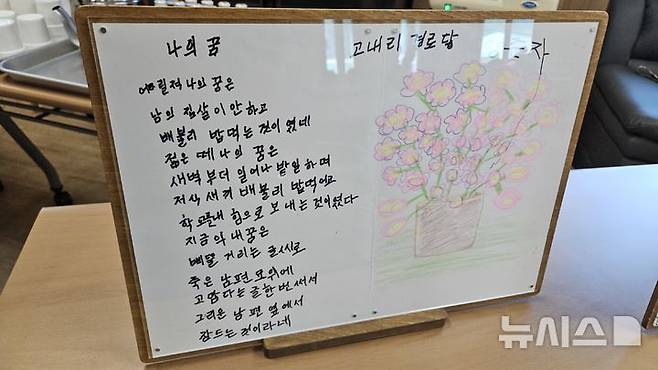 나의 꿈
고내리 경로당
어릴적 나의 꿈은
남의 집살이 안하고
배불리 밥먹는 것이 였네
젊은 때 나의 꿈은
새벽 부터 일어나 밭일 하며
저식 새끼 배불리 밥먹이고
학교를 내 힘으로 보내는 것이였다
지금의 내 꿈은
삐뚤 거리는 글씨로
죽은 남편 묘위에
고맙다는 글한번 써서
그리운 남편 옆에서
잠드는 것이라네
뉴시스